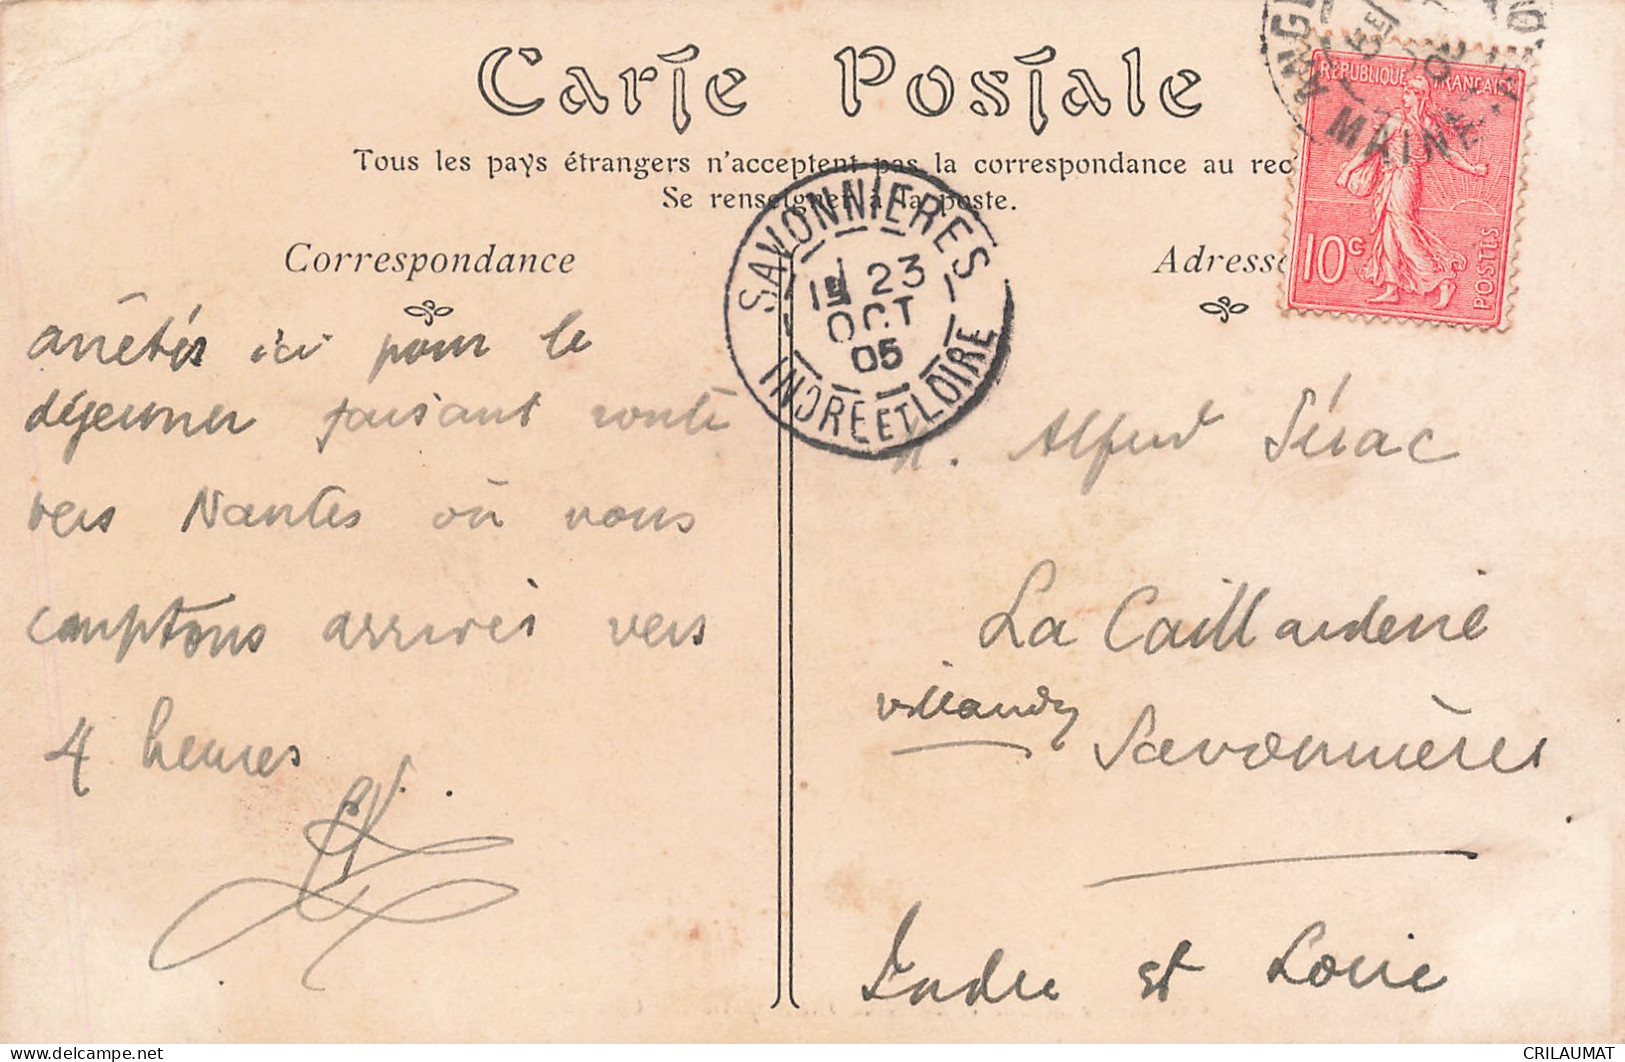 Carte Postale
Tous les pays étrangers n'acceptent pas la correspondance au rec
Se renseigner à la poste.
Correspondance
Adresse
RÉPUBLIQUE FRANÇAISE
10c
POSTES
MAINE
SAVONNIERES
23
OCT
05
INDRE ET LOIRE
arrêtés ici pour le
déjeuner faisant route
vers Nantes où nous
comptons arrivés vers
4 heures
M. Alfred Sérac
La Caillarderie
Villandry
Savonnières
Indre et Loire
CRILAUMAT